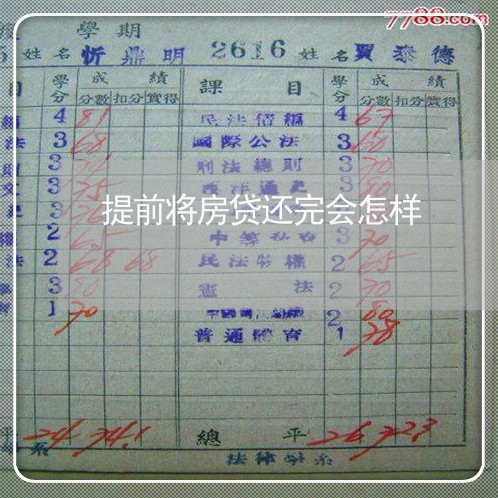 7788.com
學期
5 姓名 忻鼎明 2616 姓名 賈泰德
目 學分 成績 課目 學分 成績
分數 扣分 實得 分數 扣分 實得
4 81 民法債編 4 67
法 3 68 國際公法 3 60
3 刑法總則 3 70
3 75 西洋通史 3 80
提前将房贷还完会怎样
2 65 3 70
法 2 68 68 民法物權 2 65
3 80 憲法 2 70
1 70 2 80
普通體育 1 78
平 24 74.1 總平 26 72.3
系 法律學系